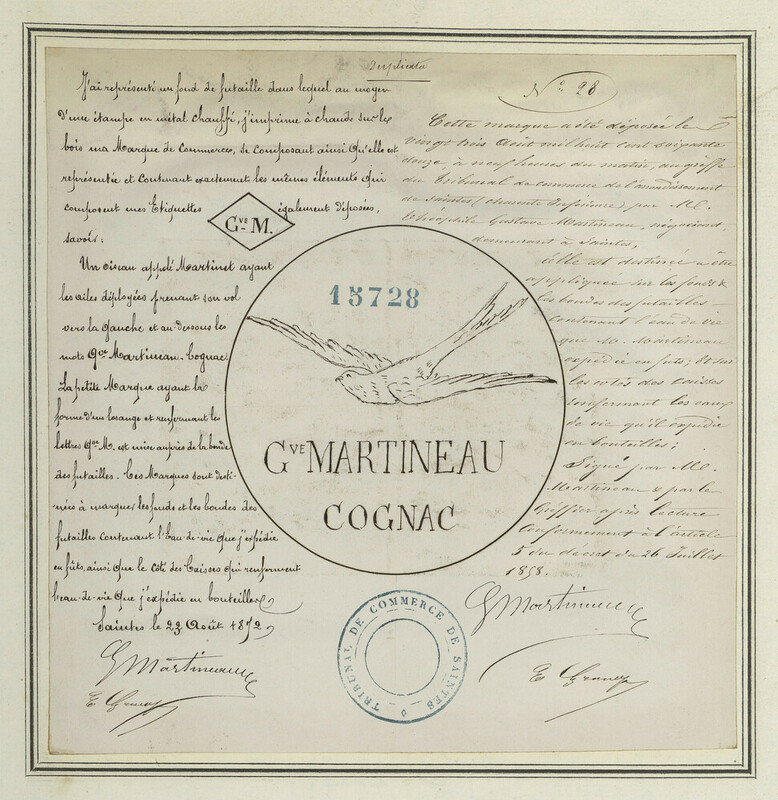 Duplicata
J'ai représenté un fond de futaille dans lequel au moyen
d'une étampe en métal chauffé, j'imprime à chaude sur le
bois ma Marque de Commerce, se composant ainsi qu'elle est
représentée et contenant exactement les mêmes éléments qui
composent mes Etiquettes également déposées,
savoir:
Un oiseau appelé Martinet ayant
les ailes déployées prenant son vol
vers la gauche et au-dessous les
mots Gve Martineau. Cognac.
La petite Marque ayant la
forme d'un losange et renfermant les
lettres Gve M. est mise auprès de la bonde
des futailles. Ces Marques sont desti-
nées à marquer les fonds et les bondes des
futailles contenant l'Eau-de-vie que j'expédie
en fûts, ainsi que le côté des Caisses qui renferment
l'eau-de-vie que j'expédie en bouteilles
Saintes le 23 Août 1872
G Martineau
GVE M.
15728
GVE MARTINEAU
COGNAC
TRIBUNAL DE COMMERCE DE SAINTES
No 28
Cette marque a été déposée le
vingt trois Août mil huit cent soixante
douze à neuf heures du matin, au greffe
du Tribunal de commerce de l'arrondissement
de Saintes (Charente Inférieure), par M.
Théophile Gustave Martineau, négociant,
demeurant à Saintes,
Elle est destinée à être
appliquée sur les fonds &
les bondes des futailles
contenant l'eau de vie
que M. Martineau
expédie en futs, et sur
les cotés des caisses
renfermant les eaux
de vie qu'il expédie
en bouteilles;
Signé par M.
Martineau & par le
Greffier après lecture
Conformément à l'article
5 du décret du 26 Juillet
1858.
G Martineau